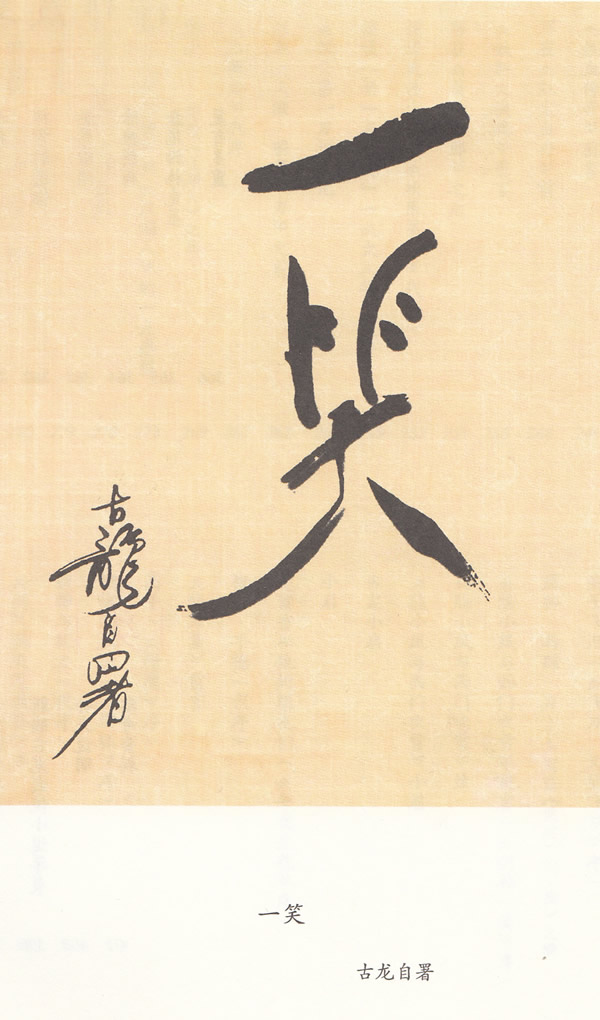 一笑
古龍自署
一笑
古龙自署